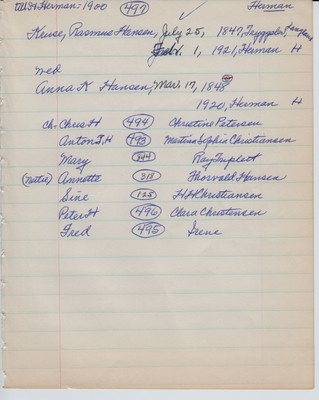 1900 497 Herman
Kruse, Rasmus Hansen, July 25, 1847, Tryggelev, Langland
Febr. 1, 1921, Herman H
wed
Anna K Hansen, Mar. 17, 1848
1920, Herman H
ch: Chris H 494 Christine Petersen
Anton J.H 793 Martina Sophia Christiansen
Mary 344 Ray Triplett
(Natie) Annette 315 Thorvald Hansen
Sine 125 H.H Christiansen
Peter H 496 Clara Christensen
Fred 495 Irene